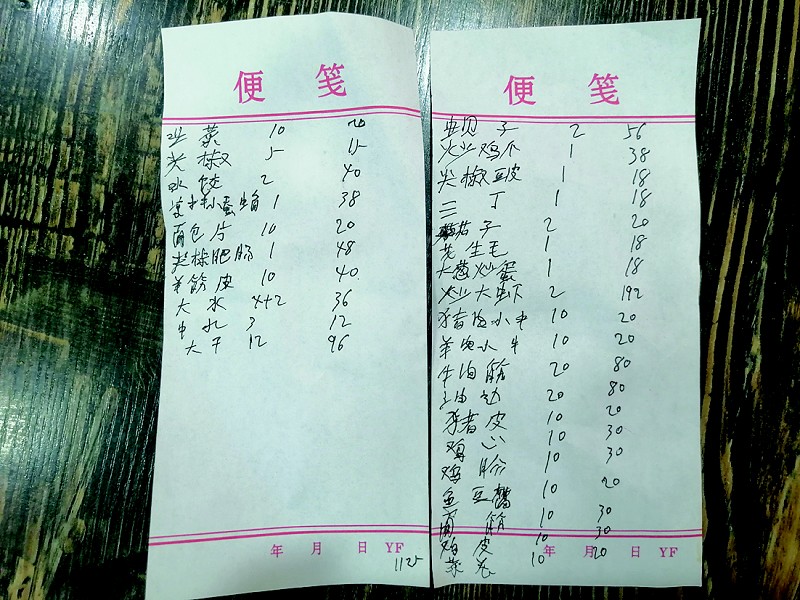 便 笺
韭菜 10 20
尖椒 5 15
水饺 2 40
1 38
面包片 10 20
尖椒肥肠 1 48
羊筋皮 10 40
大水 4+2 36
中水 3 12
大干 12 96
年 月 日 YF
1125
便 笺
蚬子 2 56
炒鸡爪 1 38
尖椒豆皮 1 18
三丁 1 18
茄子 2 20
花生毛 1 18
大葱炒蛋 1 18
炒大虾 2 192
猪肉小串 10 20
羊肉小串 10 20
牛油筋 20 80
20 80
猪皮 10 20
鸡心 10 30
鸡胗 10 30
鱼豆腐 10 20
筋 10 30
鸡皮 10 30
菜卷 10 20
年 月 日 YF